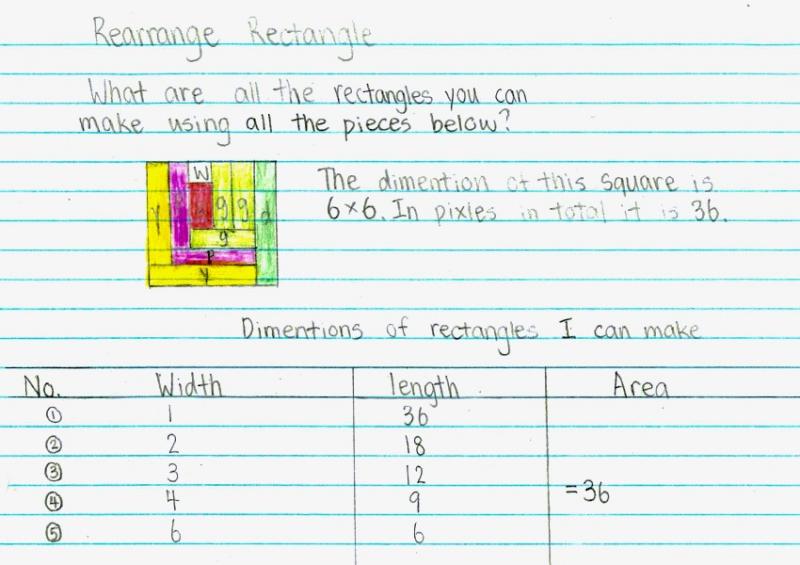 Rearrange Rectangle
What are all the rectangles you can
make using all the pieces below?
W
y g g d
g
p
y
The dimention of this square is
6×6. In pixles in total it is 36.
Dimentions of rectangles I can make
No. Width length Area
① 1 36
② 2 18
③ 3 12
④ 4 9 =36
⑤ 6 6